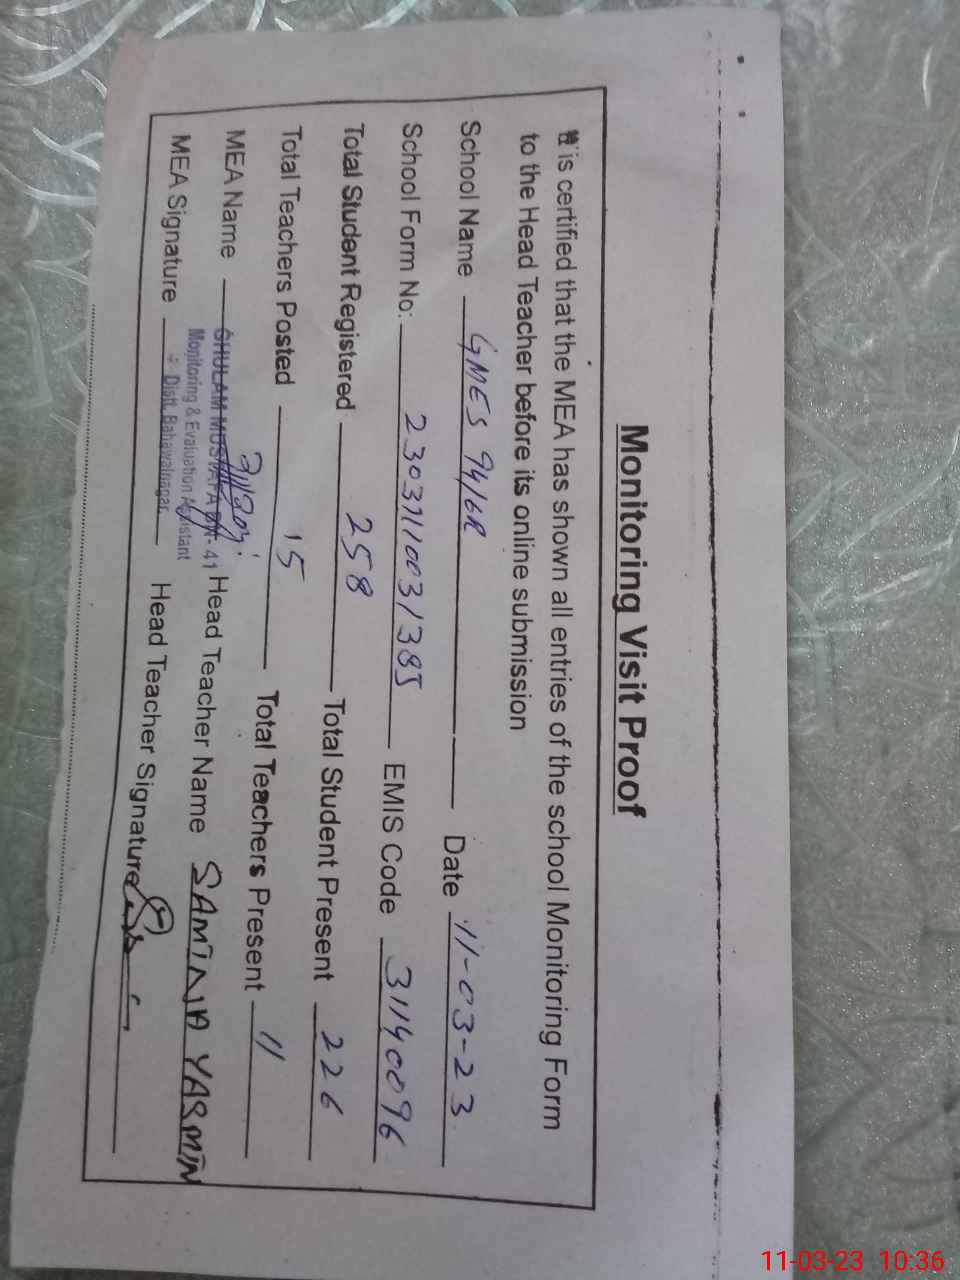 Monitoring Visit Proof
It is certified that the MEA has shown all entries of the school Monitoring Form
to the Head Teacher before its online submission
School Name GMES 94/6R Date 11-03-23
School Form No: 2303110031385 EMIS Code 31140096
Total Student Registered 258 Total Student Present 226
Total Teachers Posted 15 Total Teachers Present 11
MEA Name GHULAM MUSTAFA - 41 Head Teacher Name SAMINA YASMIN
Monitoring & Evaluation Assistant
Distt. Bahawalnagar.
MEA Signature Head Teacher Signature
11-03-23 10:36